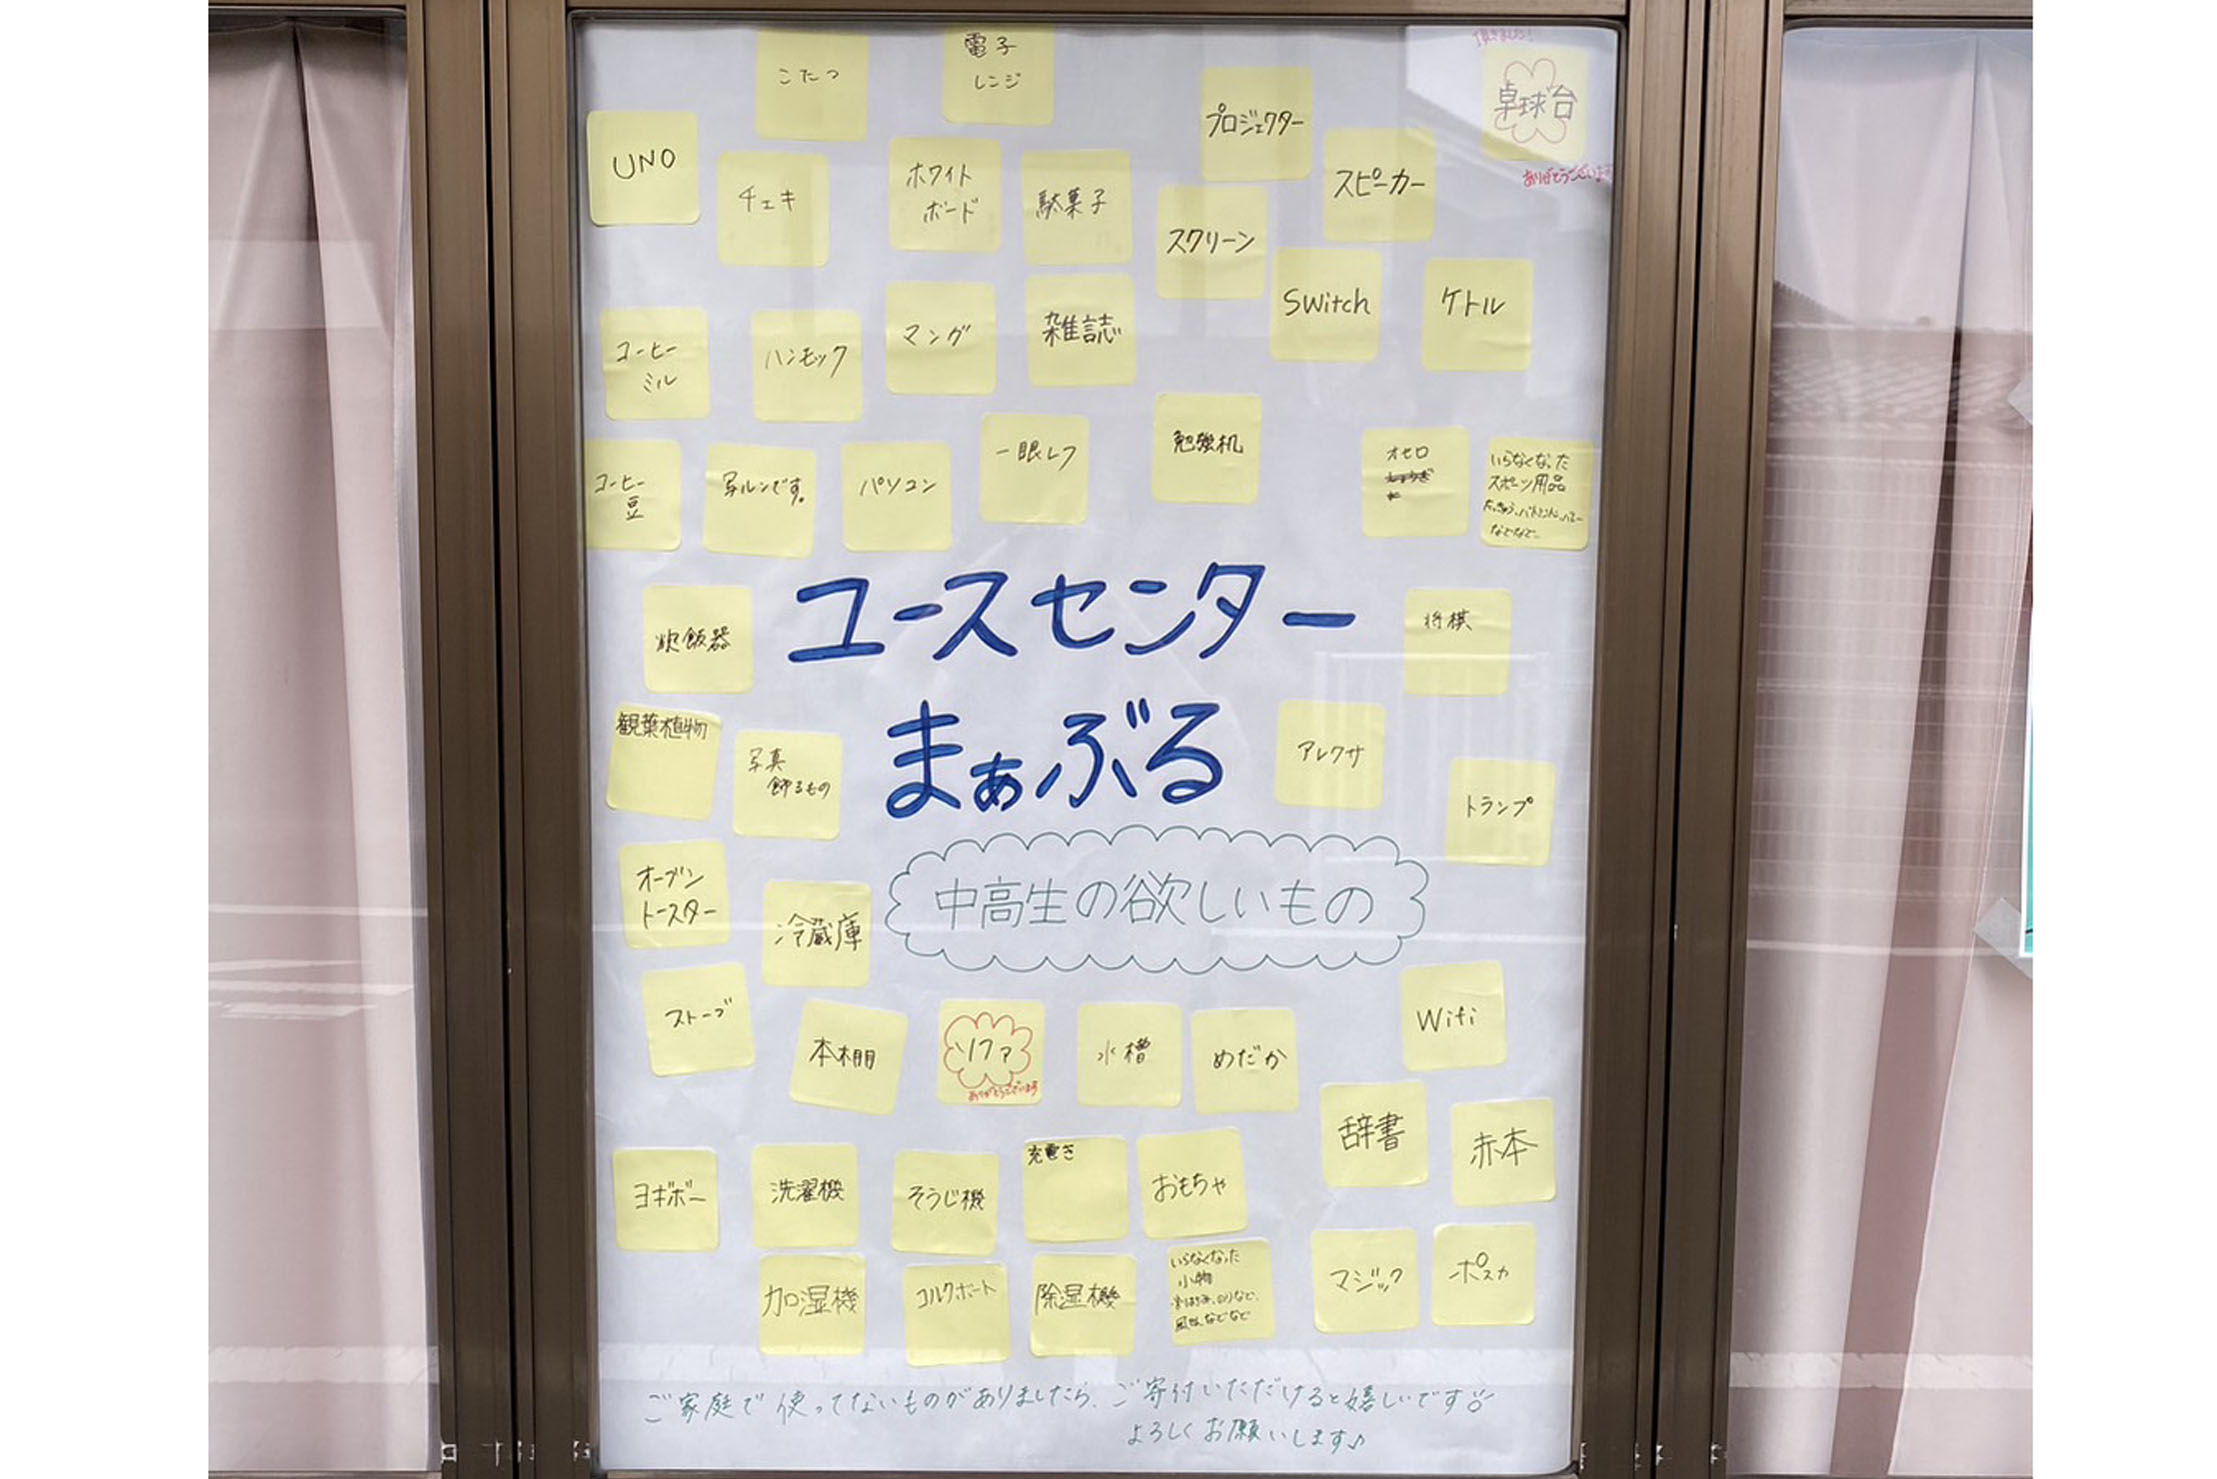 こたつ
電子
レンジ
頂きました!
卓球台
ありがとうございます
プロジェクター
UNO
チェキ
ホワイト
ボード
駄菓子
スピーカー
スクリーン
Switch
ケトル
コーヒー
ミル
ハンモック
マンガ
雑誌
コーヒー
豆
写ルンです。
パソコン
一眼レフ
勉強机
オセロ
いらなくなった
スポーツ用品
などなど…
ユースセンター
まぁぶる
中高生の欲しいもの
炊飯器
将棋
観葉植物
写真
飾るもの
アレクサ
トランプ
オーブン
トースター
冷蔵庫
ストーブ
本棚
ソファ
ありがとうございます
水槽
めだか
Wifi
辞書
赤本
ヨギボー
洗濯機
そうじ機
充電き
おもちゃ
加湿機
コルクボード
除湿機
いらなくなった
小物
マジック
ポスカ
ご家庭で使ってないものがありましたら、ご寄付いただけると嬉しいです
よろしくお願いします♪